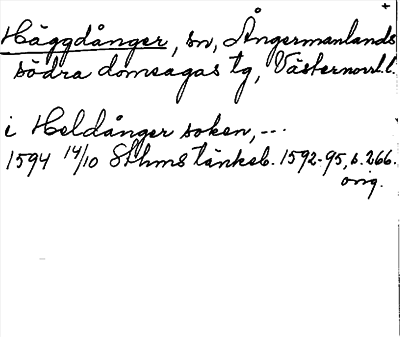 +
Häggdånger, sn, Ångermanlands
södra domsagas tg, Västernorrl.l.
i Heldånger soken, ---
1594 14/10 Sthms tänkeb. 1592-95, s. 266.
orig.